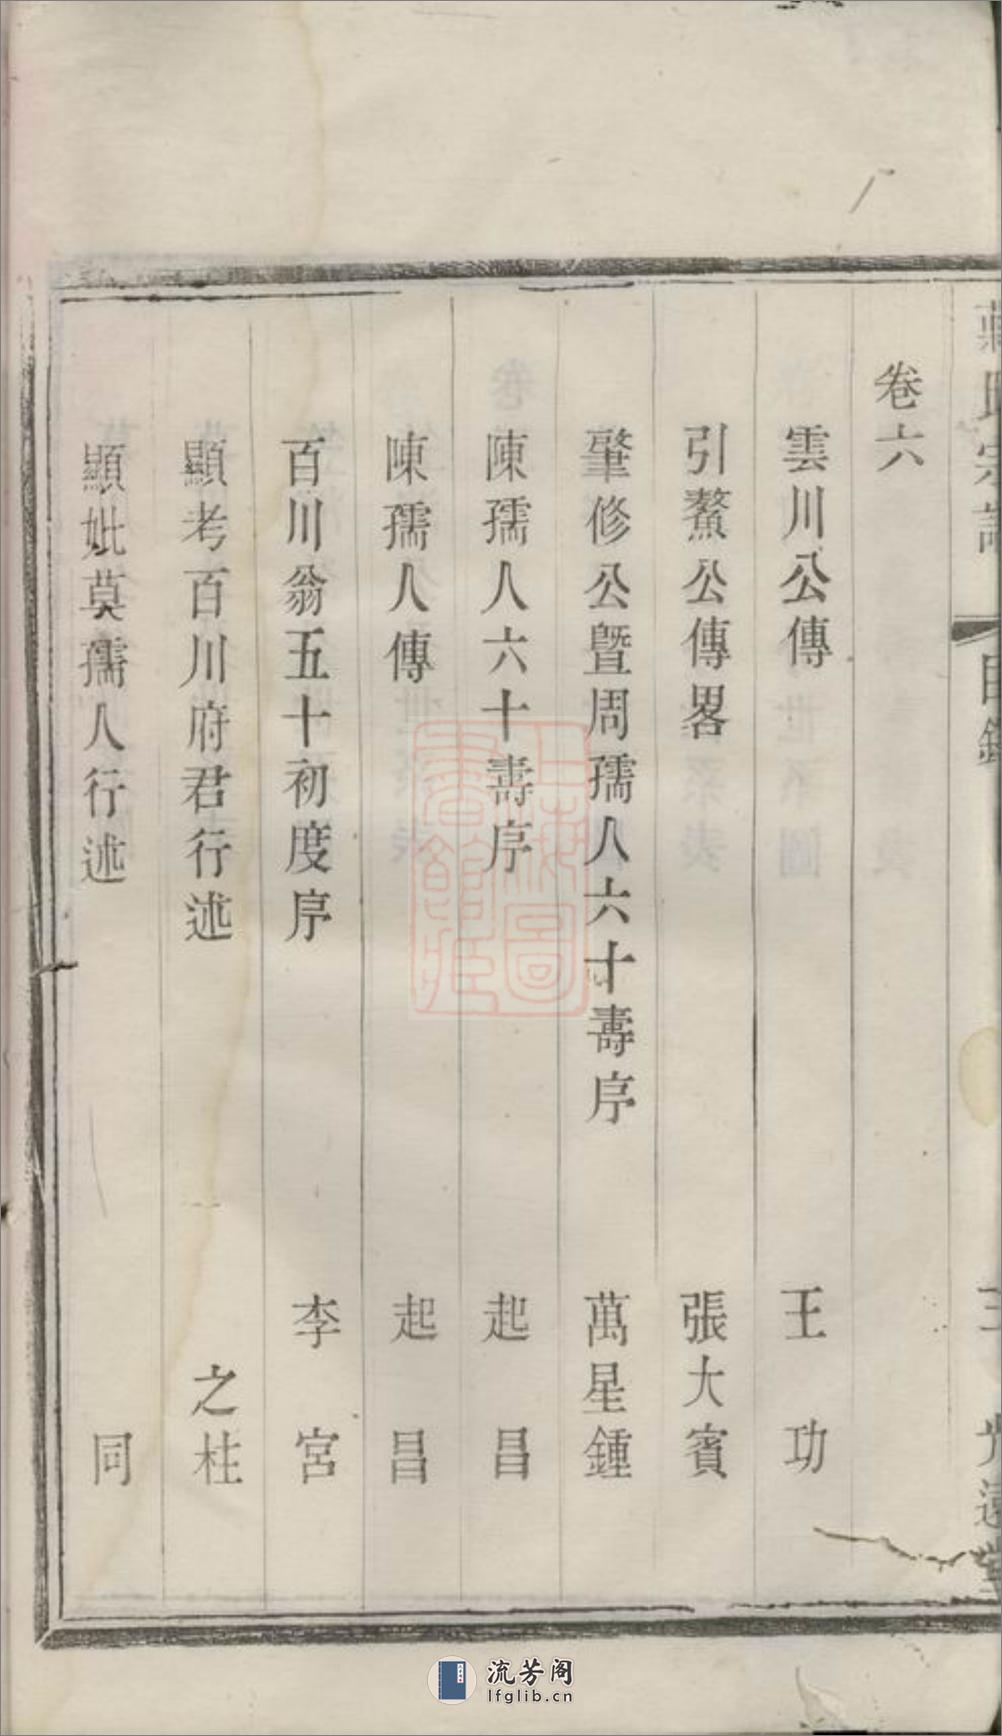 氏宗譜 目錄 光遠堂
卷六
雲川公傳 王功
引鰲公傳畧 張大賓
肇修公暨周孺人六十壽序 萬星鍾
陳孺人六十壽序 起昌
陳孺人傳 起昌
百川翁五十初度序 李宮
顯考百川府君行述 之桂
顯妣莫孺人行述 同
上海圖書館藏
流芳阁
lfglib.cn